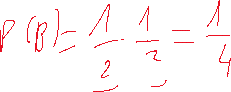 P(B) = 1/2 · 1/2 = 1/4